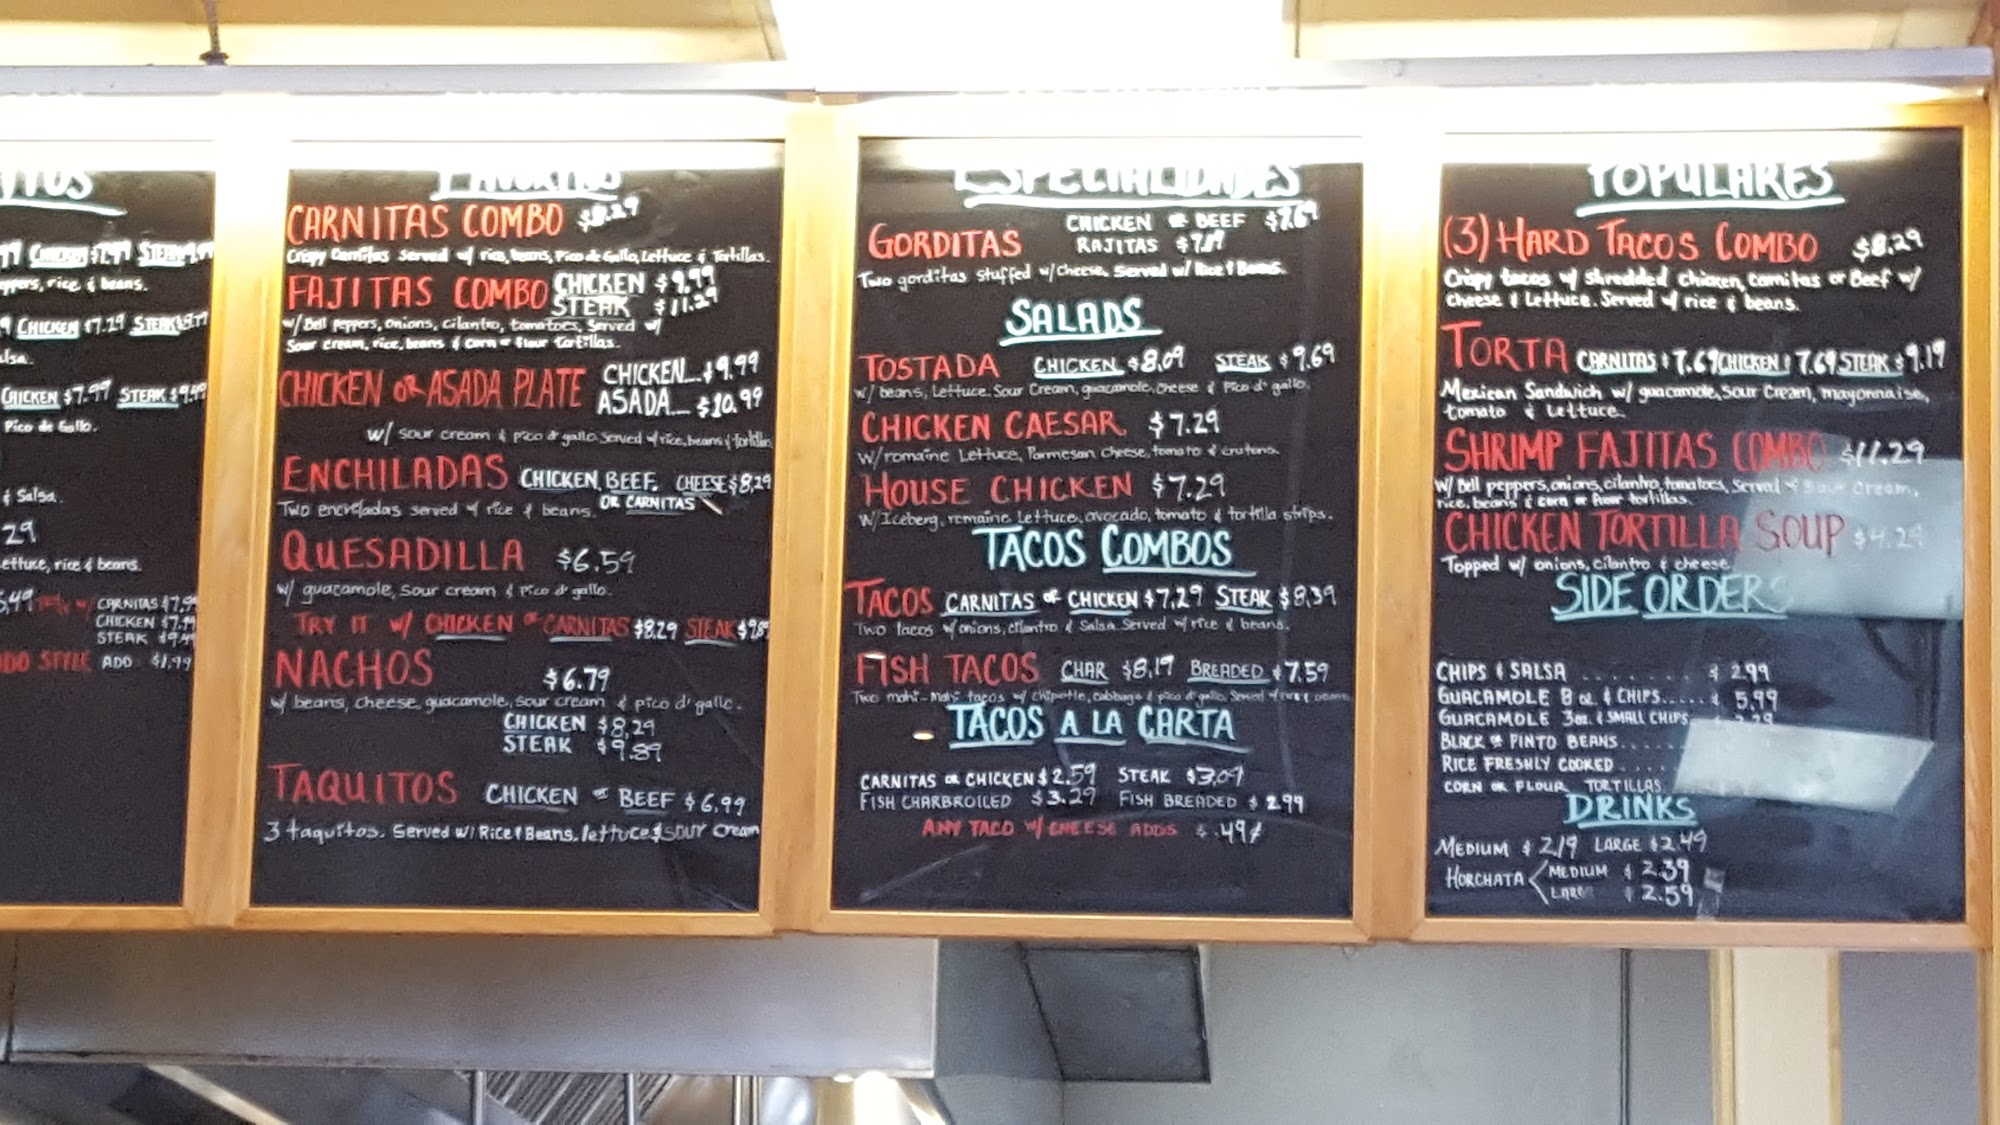 CHICKEN $7.99 STEAK
rice & beans.
CHICKEN $7.29 STEAK
CHICKEN $7.99 STEAK $9.49
Pico de Gallo.
& Salsa.
29
rice & beans.
CARNITAS $7.99
CHICKEN $7.99
STEAK $9.49
STYLE ADD $1.99
FAVORITOS
CARNITAS COMBO $8.29
Crispy Carnitas Served w/ rice, beans, Pico de Gallo, Lettuce & Tortillas.
FAJITAS COMBO CHICKEN $9.99
STEAK $11.29
w/ Bell peppers, onions, cilantro, tomatoes, Served w/
Sour cream, rice, beans & corn or flour tortillas.
CHICKEN OR ASADA PLATE CHICKEN... $9.99
ASADA... $10.99
w/ sour cream & pico d' gallo. Served w/ rice, beans & tortillas
ENCHILADAS CHICKEN, BEEF, CHEESE $8.29
OR CARNITAS
Two enchiladas served w/ rice & beans.
QUESADILLA $6.59
w/ guacamole, sour cream & Pico d' gallo.
TRY IT w/ CHICKEN OR CARNITAS $8.29 STEAK
NACHOS $6.79
w/ beans, cheese, guacamole, sour cream & pico d' gallo.
CHICKEN $8.29
STEAK $9.89
TAQUITOS CHICKEN OR BEEF $6.99
3 taquitos. Served w/ Rice & Beans, lettuce & sour cream
ESPECIALIDADES
GORDITAS CHICKEN OR BEEF $7.69
RAJITAS
Two gorditas stuffed w/ cheese. Served w/ Rice & Beans.
SALADS
TOSTADA CHICKEN $8.09 STEAK $9.69
w/ beans, Lettuce, Sour Cream, guacamole, cheese & Pico d' gallo.
CHICKEN CAESAR $7.29
w/ romaine Lettuce, Parmesan cheese, tomato & crutons.
HOUSE CHICKEN $7.29
w/ Iceberg, romaine Lettuce, avocado, tomato & tortilla strips.
TACOS COMBOS
TACOS CARNITAS OR CHICKEN $7.29 STEAK $8.39
Two tacos w/ onions, cilantro & Salsa. Served w/ rice & beans.
FISH TACOS CHAR $8.19 BREADED $7.59
Two mahi-mahi tacos w/ chipotle, cabbage & pico d' gallo. Served w/ rice & beans.
TACOS A LA CARTA
CARNITAS OR CHICKEN $2.59 STEAK $3.09
FISH CHARBROILED $3.29 FISH BREADED $2.99
ANY TACO w/ CHEESE ADDS $.49¢
POPULARES
(3) HARD TACOS COMBO $8.29
Crispy tacos w/ shredded chicken, carnitas or Beef w/
cheese & Lettuce. Served w/ rice & beans.
TORTA CARNITAS $7.69 CHICKEN $7.69 STEAK $9.19
Mexican Sandwich w/ guacamole, sour Cream, mayonnaise,
tomato & Lettuce.
SHRIMP FAJITAS COMBO $11.29
w/ Bell peppers, onions, cilantro, tomatoes, Served w/ Sour Cream,
rice, beans & corn or flour tortillas.
CHICKEN TORTILLA SOUP $4.29
Topped w/ onions, cilantro & cheese.
SIDE ORDERS
CHIPS & SALSA ........ $2.99
GUACAMOLE 8 oz. & CHIPS..... $5.99
GUACAMOLE 3oz. & SMALL CHIPS
BLACK OR PINTO BEANS.....
RICE FRESHLY COOKED ....
CORN OR FLOUR TORTILLAS
DRINKS
MEDIUM $2.19 LARGE $2.49
HORCHATA MEDIUM $2.39
LARGE $2.59